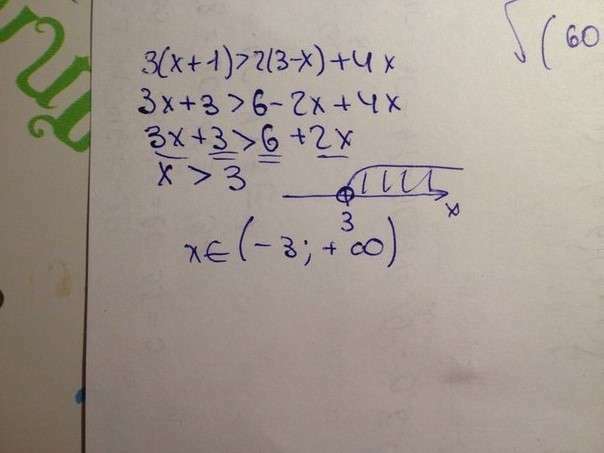 3(x+1)>2(3-x)+4x
3x+3>6-2x+4x
3x+3>6+2x
x > 3
3
x
x∈(-3;+∞)
√(60